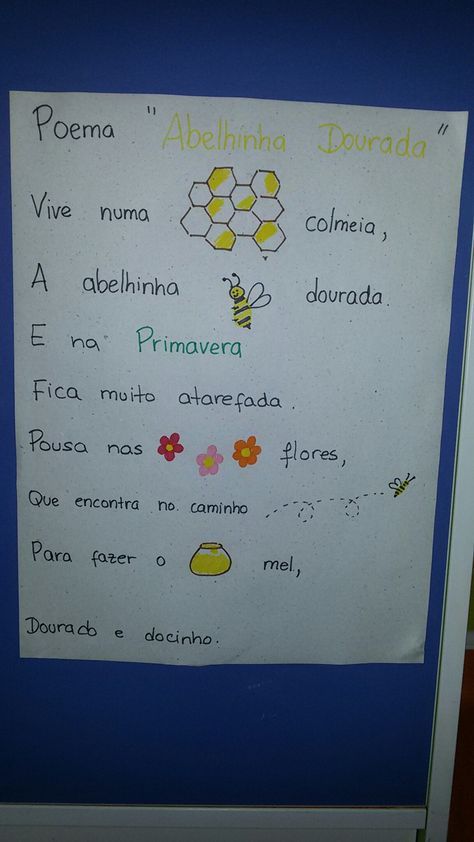 Poema "Abelhinha Dourada"
Vive numa colmeia,
A abelhinha dourada.
E na Primavera
Fica muito atarefada.
Pousa nas flores,
Que encontra no caminho
Para fazer o mel,
Dourado e docinho.